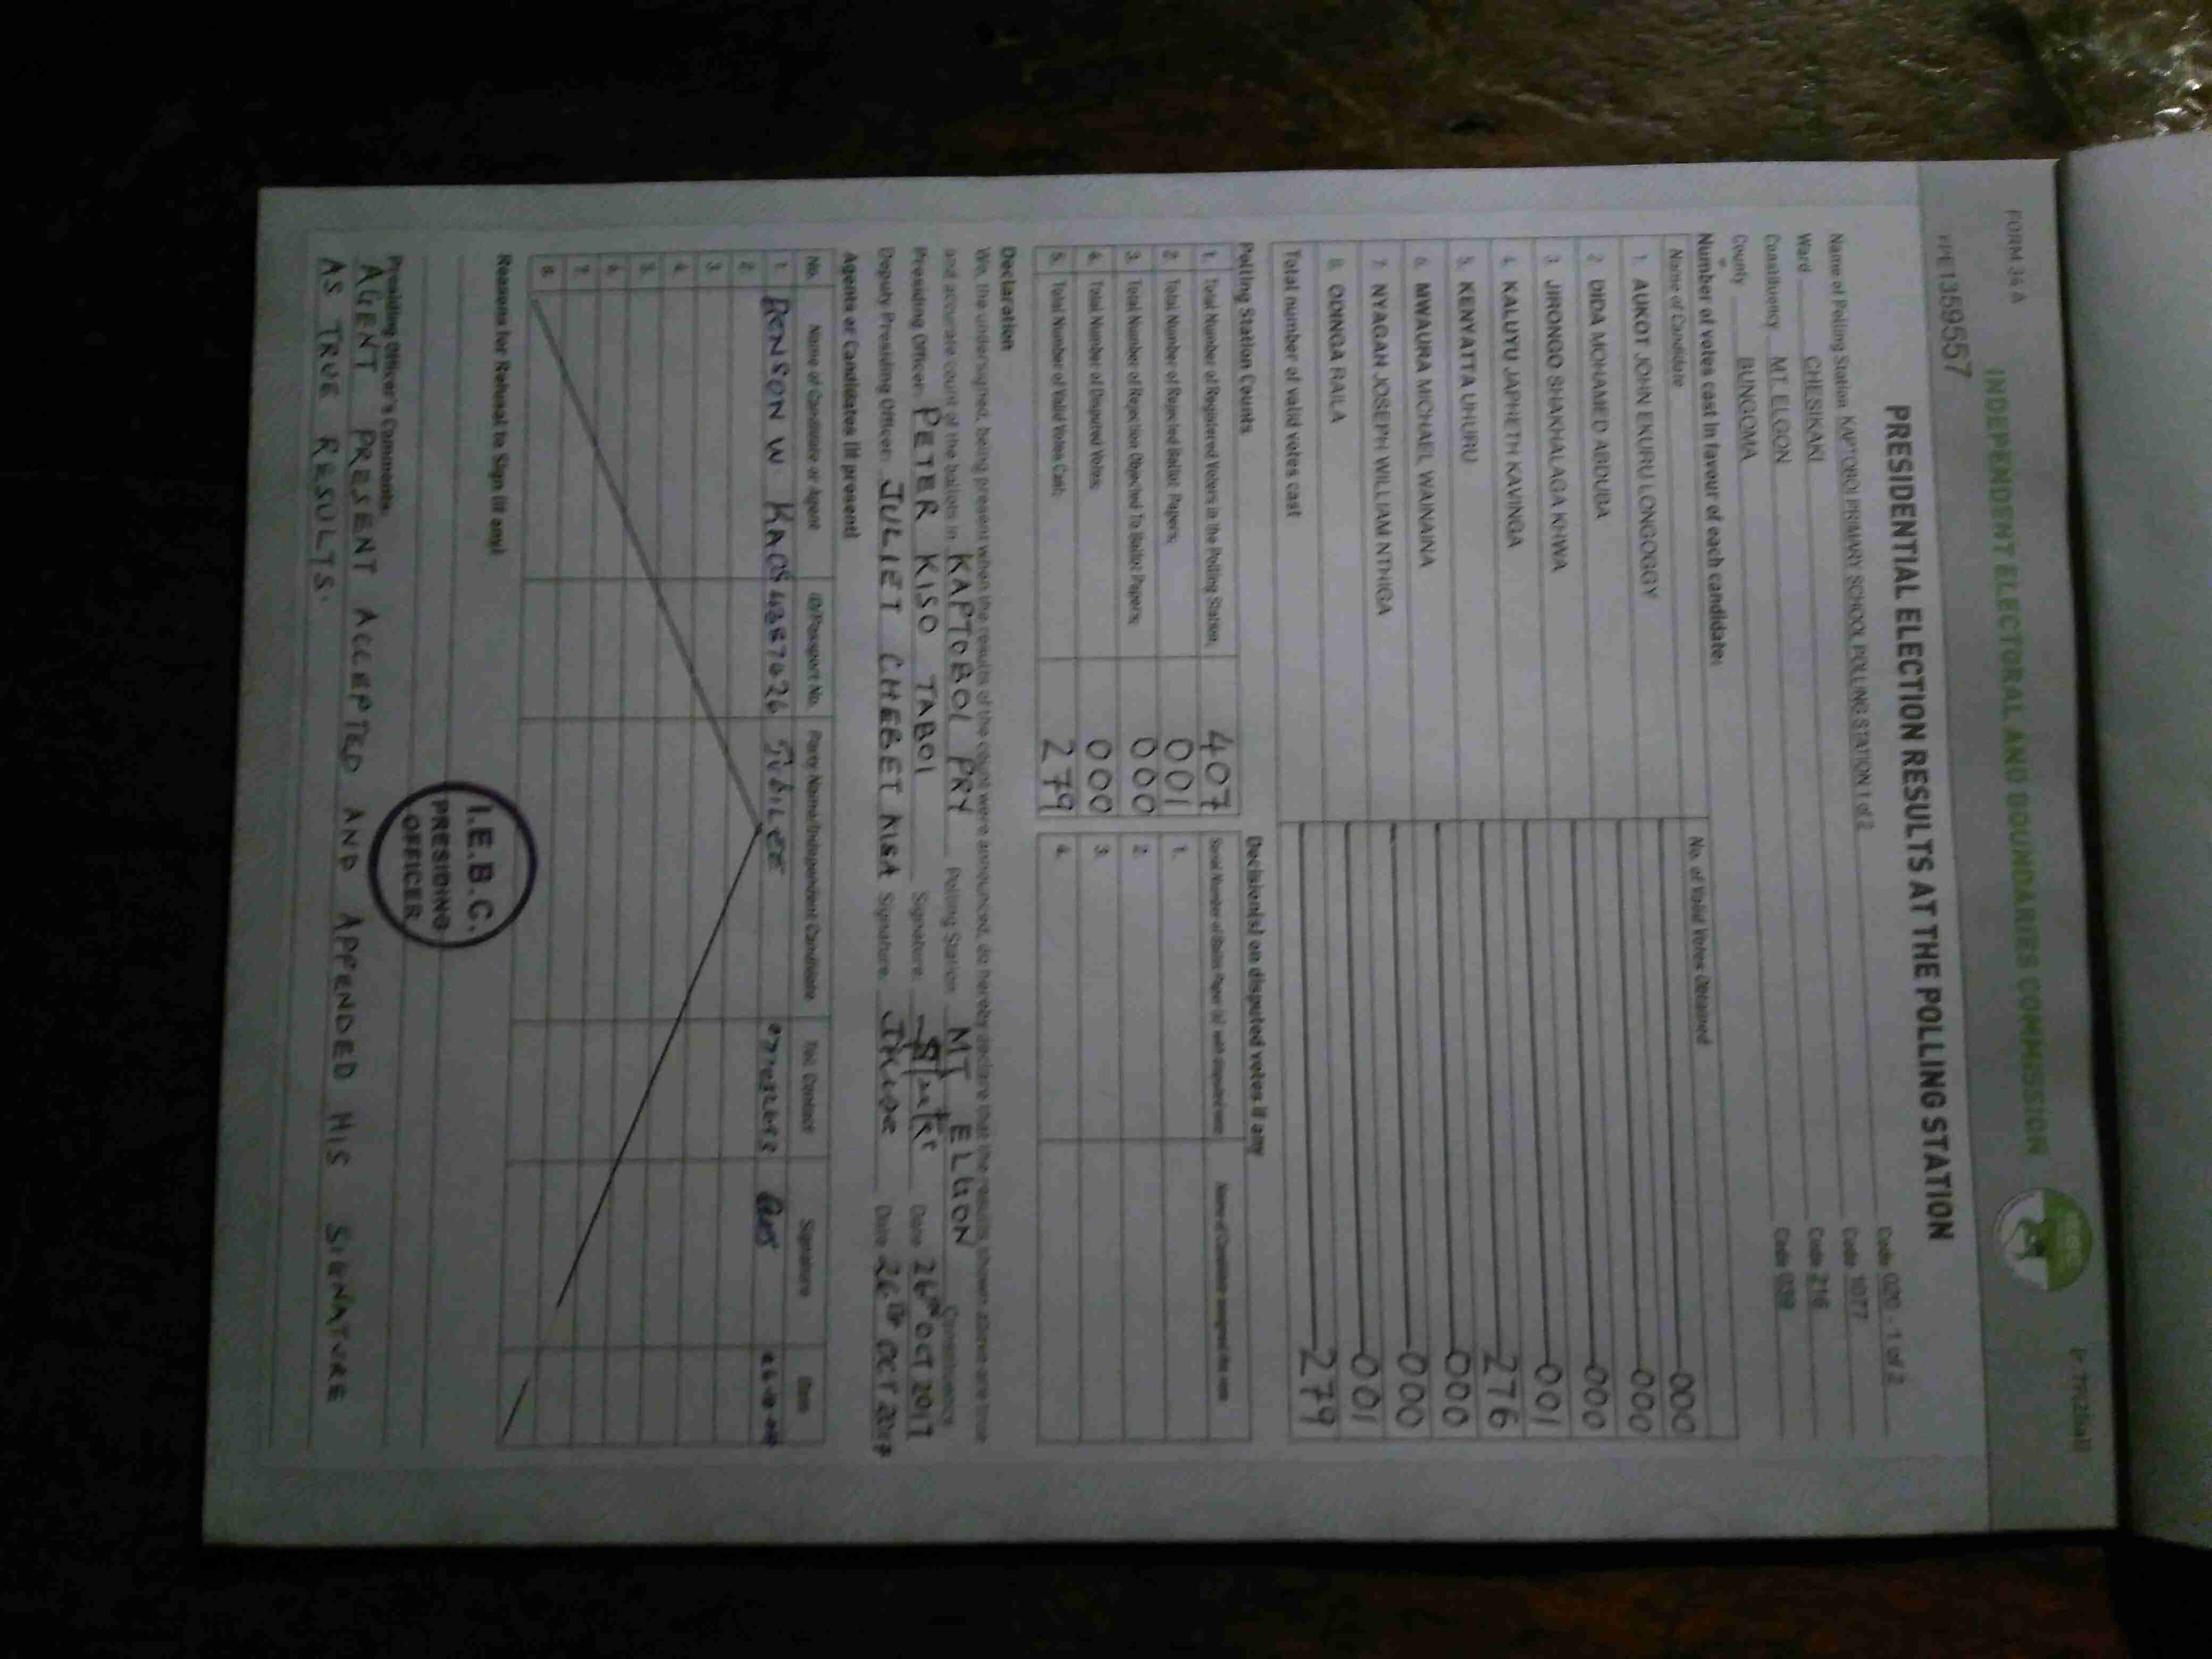 FORM 34 A
INDEPENDENT ELECTORAL AND BOUNDARIES COMMISSION
PPE1359557
PRESIDENTIAL ELECTION RESULTS AT THE POLLING STATION
Name of Polling Station KAPTOBOI PRIMARY SCHOOL POLLING STATION 1 of 2 Code 020 - 1 of 2
Ward CHESIKAKI Code 1077
Constituency MT. ELGON Code 216
County BUNGOMA Code 039
Number of votes cast in favour of each candidate:
Name of Candidate No. of Valid Votes Obtained
1. AUKOT JOHN EKURU LONGOGGY 000
2. DIDA MOHAMED ABDUBA 000
3. JIRONGO SHAKHALAGA KHWA 000
4. KALUYU JAPHETH KAVINGA 001
5. KENYATTA UHURU 276
6. MWAURA MICHAEL WAINAINA 000
7. NYAGAH JOSEPH WILLIAM NTHIGA 000
8. ODINGA RAILA 001
Total number of valid votes cast 279
Polling Station Counts
1. Total Number of Registered Voters in the Polling Station; 407
2. Total Number of Rejected Ballot Papers; 001
3. Total Number of Rejection Objected To Ballot Papers; 000
4. Total Number of Disputed Votes; 000
5. Total Number of Valid Votes Cast; 279
Decision(s) on disputed votes if any
Serial Number of Ballot Paper (s) with disputed votes Name of Candidate assigned the vote
1.
2.
3.
4.
Declaration
We, the undersigned, being present when the results of the count were announced, do hereby declare that the results shown above are true
and accurate count of the ballots in KAPTOBOI PRY Polling Station MT ELGON Constituency
Presiding Officer: PETER KISO TABOI Signature: Date 26TH OCT 2017
Deputy Presiding Officer: JULIET CHEBET KISA Signature: Date 26TH OCT 2017
Agents or Candidates (if present)
No. Name of Candidate or Agent ID/Passport No. Party Name/Independent Candidate Tel. Contact Signature Date
1. BENSON W JUBILEE
2.
3.
4.
5.
6.
7.
8.
Reasons for Refusal to Sign (if any)
I.E.B.C.
PRESIDING
OFFICER
Presiding Officer's Comments:
AGENT PRESENT ACCEPTED AND APPENDED HIS SIGNATURE
AS TRUE RESULTS.